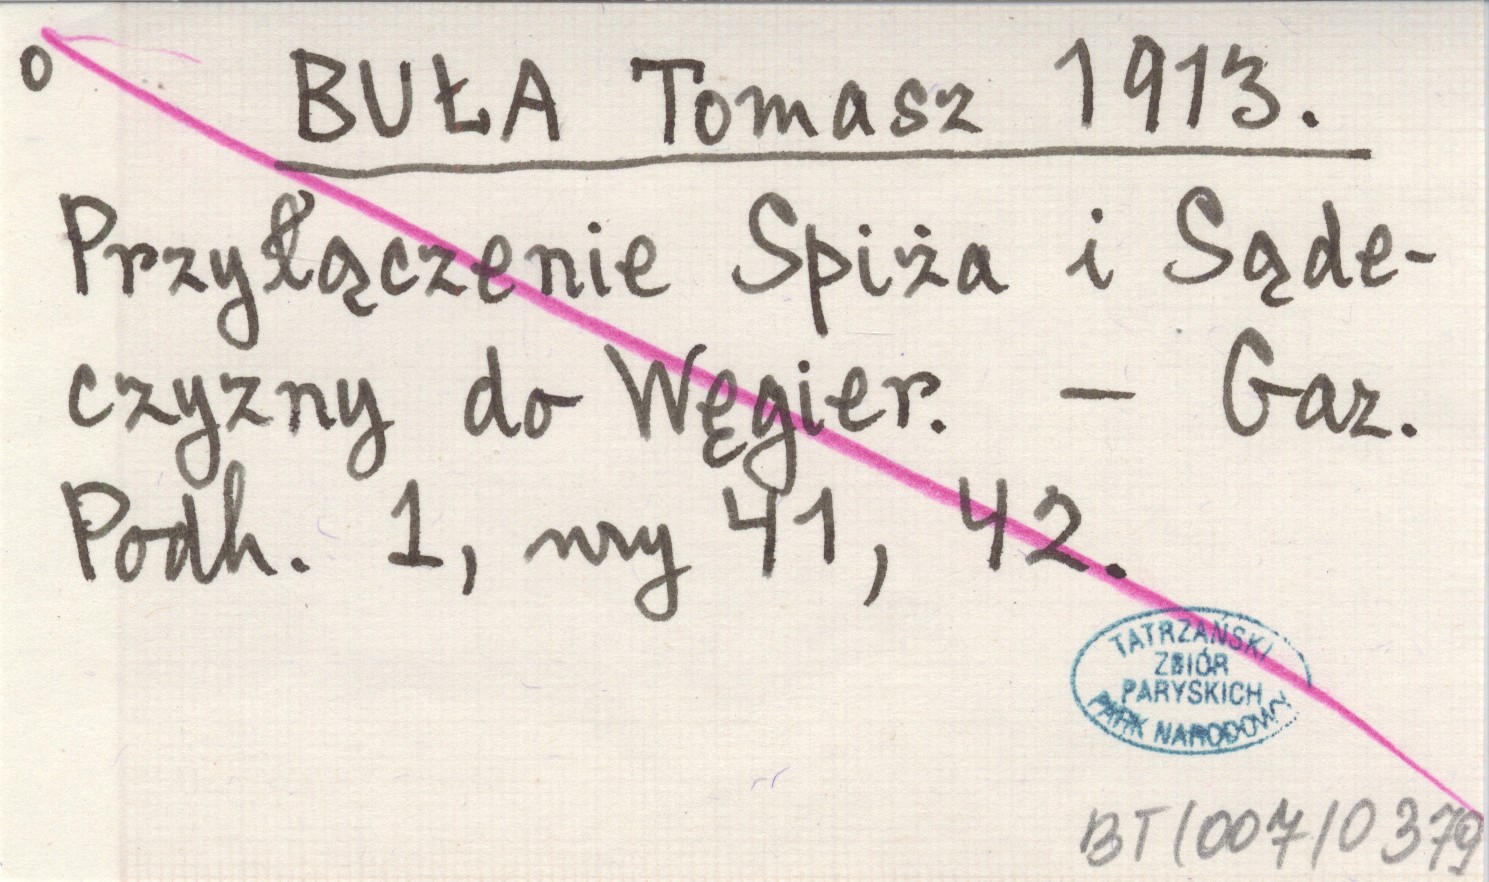 o
BUŁA Tomasz 1913.
Przyłączenie Spiża i Sąde-
czyzny do Węgier. — Gaz.
Podh. 1, nry 41, 42.
TATRZAŃSKI
ZBIÓR
PARYSKICH
PARK NARODOWY
BT/007/0379